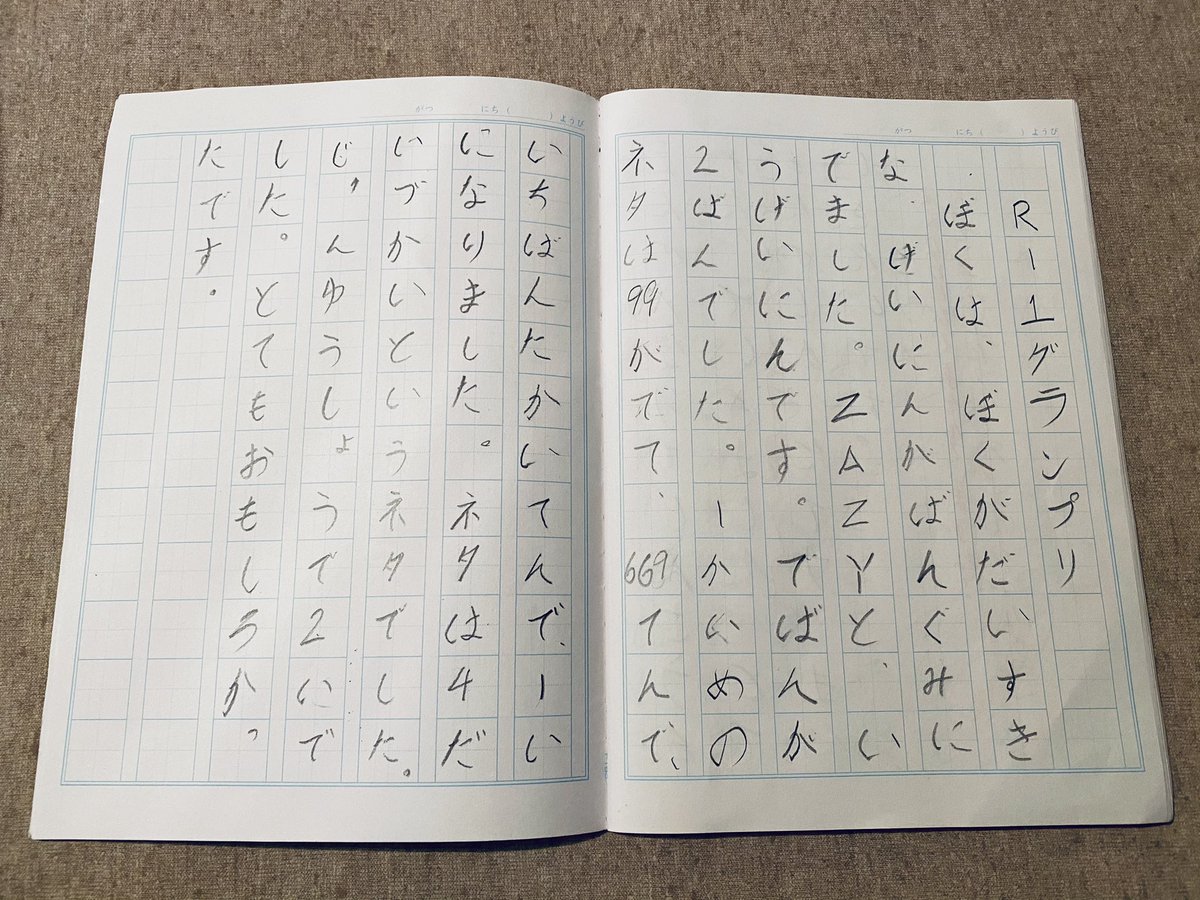 がつ　にち（　）ようび
Rー1グランプリ
ぼくは、ぼくがだいすき
なげいにんがばんぐみに
でました。ZAZYと、い
うげいにんです。でばんが
2ばんでした。1かいめの
ネタは99がでて、669てんで、
がつ　にち（　）ようび
いちばんたかいてんで、1い
になりました。ネタは4だ
いづかいというネタでした。
じゅんゆうしょうで2いで
した。とてもおもしろかっ
たです。